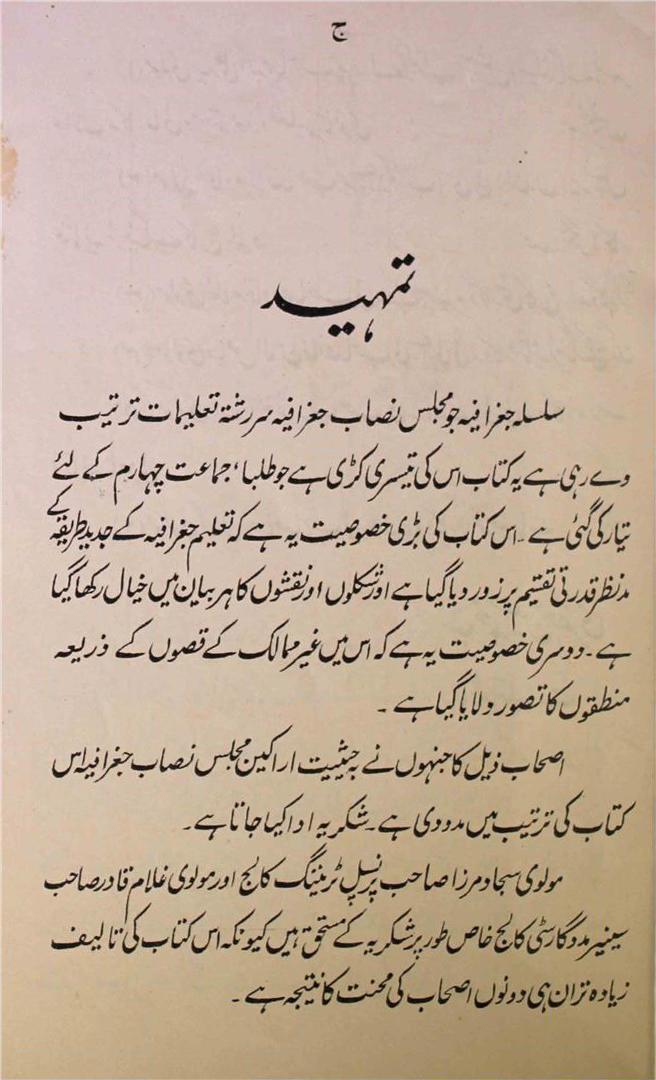 ج
تمہید
سلسلہ جغرافیہ جو مجلس نصاب جغرافیہ سررشتۂ تعلیمات ترتیب
دے رہی ہے یہ کتاب اس کی تیسری کڑی ہے جو طلباء جماعت چہارم کے لئے
تیار کی گئی ہے ۔ اس کتاب کی بڑی خصوصیت یہ ہے کہ تعلیم جغرافیہ کے جدید طریقہ کے
مدنظر قدرتی تقسیم پر زور دیا گیا ہے اور شکلوں اور نقشوں کا ہر بیان میں خیال رکھا گیا
ہے ۔ دوسری خصوصیت یہ ہے کہ اس میں غیر ممالک کے قصوں کے ذریعہ
منطقوں کا تصور دلایا گیا ہے ۔
اصحاب ذیل کا جنہوں نے بہ حیثیت اراکین مجلس نصاب جغرافیہ اس
کتاب کی ترتیب میں مدد دی ہے ۔ شکریہ ادا کیا جاتا ہے ۔
مولوی سجاد مرزا صاحب پرنسپل ٹریننگ کالج اور مولوی غلام قادر صاحب
سینیر مددگار سٹی کالج خاص طور پر شکریہ کے مستحق ہیں کیونکہ اس کتاب کی تالیف
زیادہ تر ان ہی دونوں اصحاب کی محنت کا نتیجہ ہے ۔